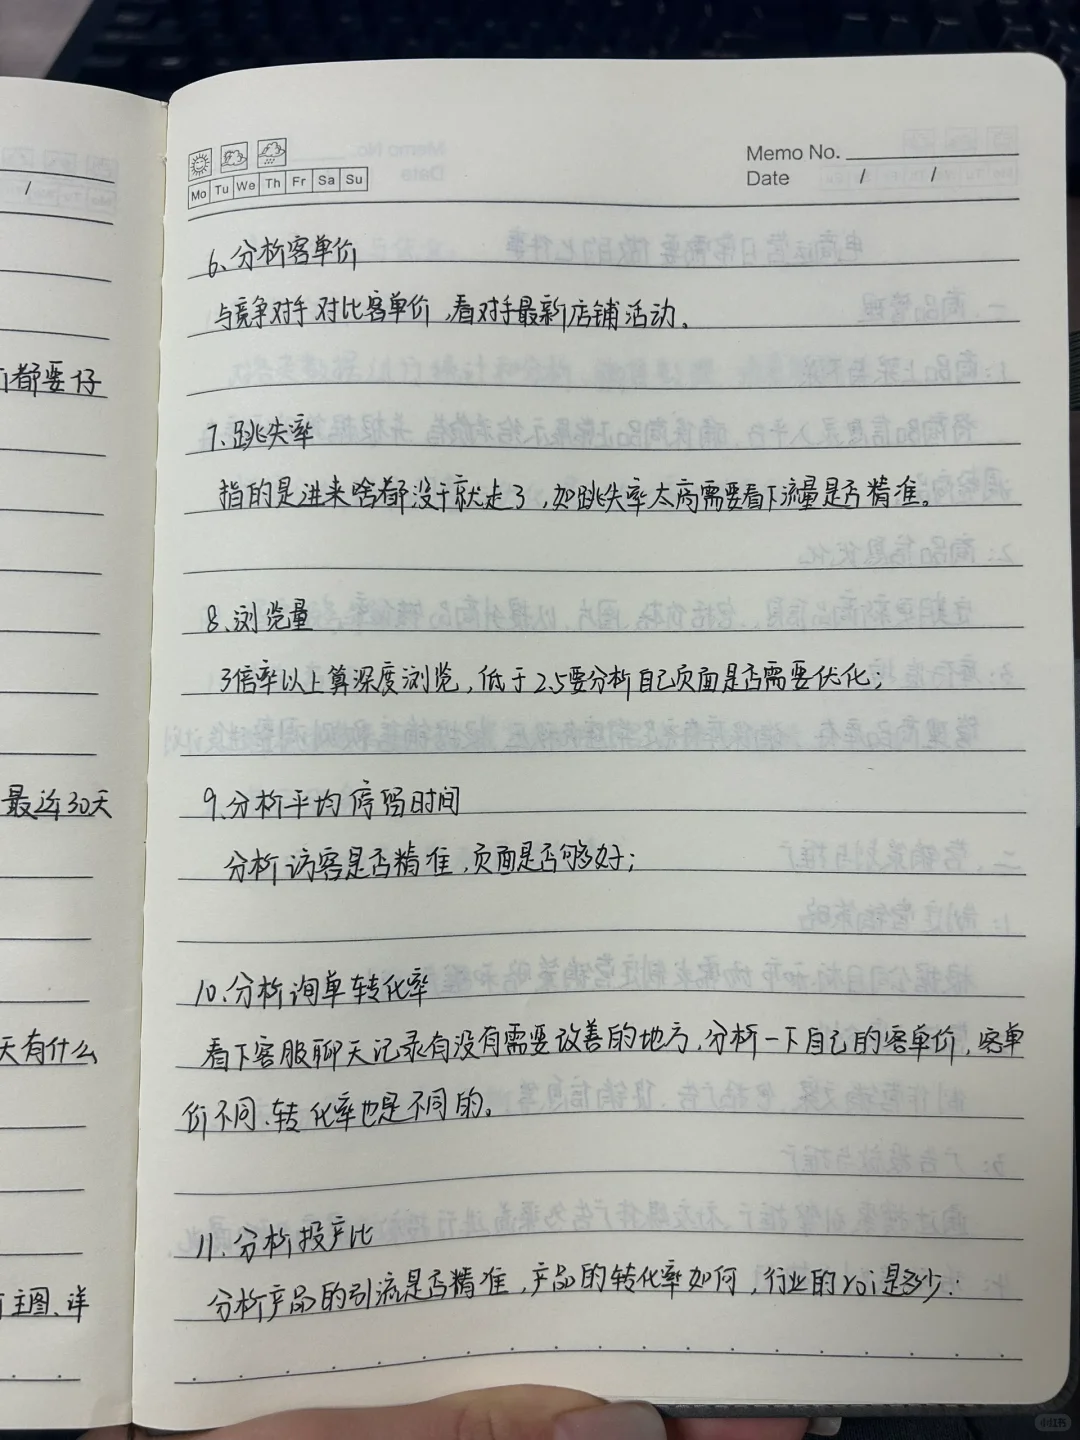 Memo No.
Date / /
Mo Tu We Th Fr Sa Su
6、分析客单价
与竞争对手对比客单价,看对手最新店铺活动。
7、跳失率
指的是进来啥都没干就走了,如跳失率太高需要看下流量是否精准。
8、浏览量
3倍率以上算深度浏览,低于2.5要分析自己页面是否需要优化;
9、分析平均停留时间
分析访客是否精准,页面是否够好;
10、分析询单转化率
看下客服聊天记录有没有需要改善的地方,分析一下自己的客单价,客单
价不同、转化率也是不同的。
11、分析投产比
分析产品的引流是否精准,产品的转化率如何,行业的roi是多少.
/
都要仔
最近30天
天有什么
主图、详
小红书